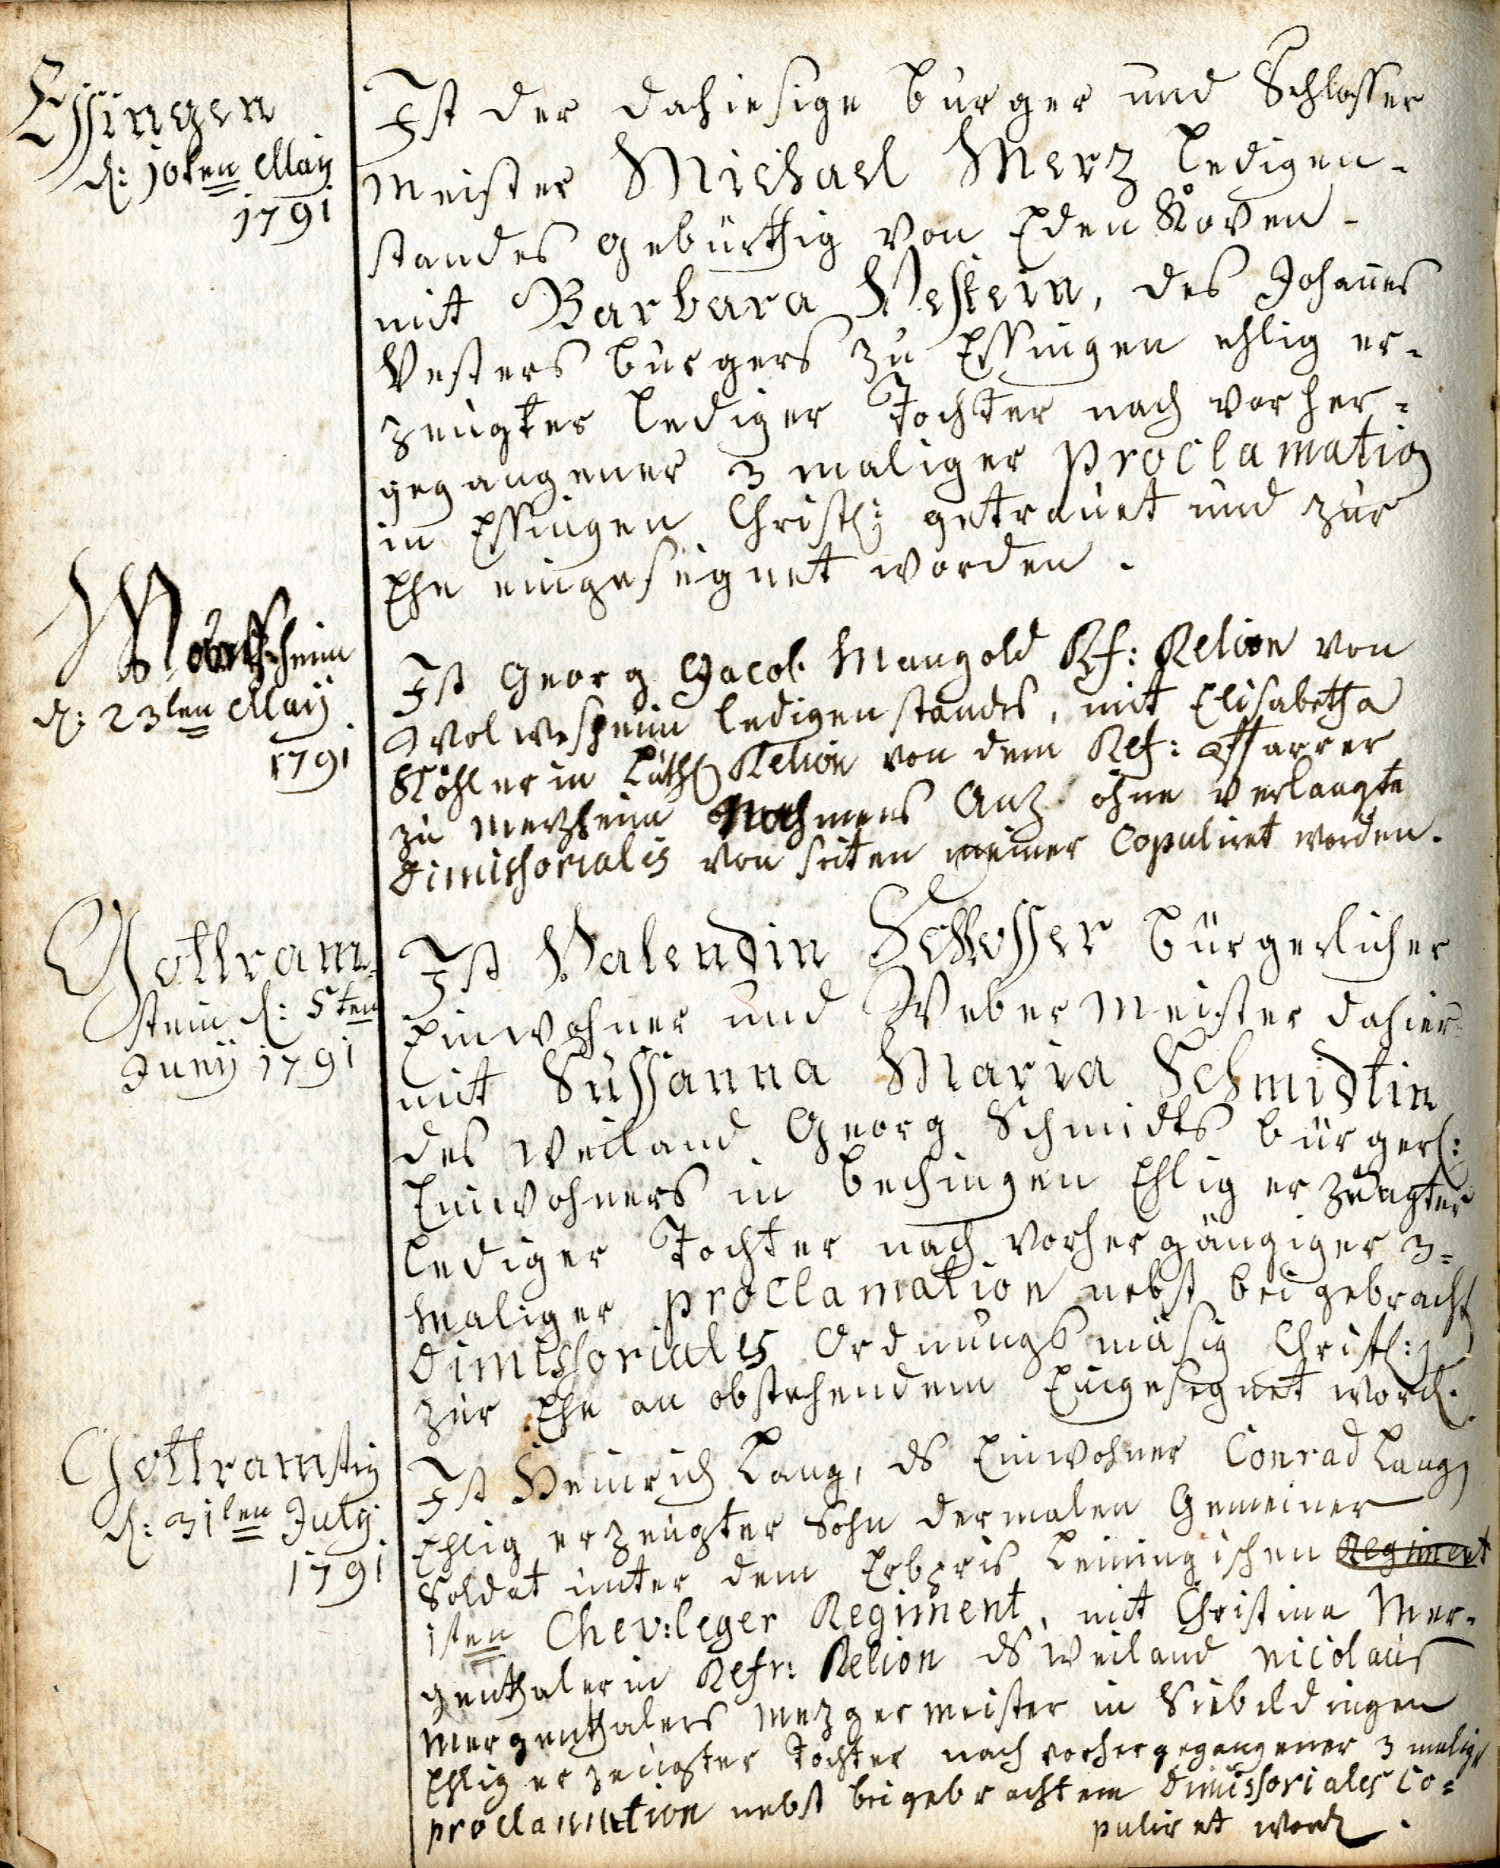 Essingen
d: 10ten May
1791
Ist der dahiesige burger und Schlosser
meister Michael Merz ledigen-
standes gebürthig von Edenkoven-
mit Barbara Vesterin, des Johannes
Vesters burgers zu Essingen ehlig er-
zeugter lediger Tochter nach vorher-
gegangener 3 maliger proclamation
in Essingen Christl: getrauet und zur
Ehe eingesegnet worden.
d: 23ten May
1791
Ist Georg Jacob Mangold Rf: Relion von
ledigenstandes, mit Elisabetha
Köhlerin Luth Relion von dem Ref: Pfarrer
zu Merzheim Nahmens Anz ohne verlangte
dimissorialis von seiten meiner Copuliret worden.
Gottram-
stein d: 5ten
Juny 1791
Ist Valendin Schlosser bürgerlicher
Einwohner und Weber Meister dahier
mit Sussanna Maria Schmidtin
des weiland Georg Schmidts bürgerl:
Einwohners in bechingen Ehlig erzeugter
lediger Tochter nach vorhergängiger 3-
maliger proclamation nebst beigebracht
dimissoriales Ordnungsmäsig Christl:
zur Ehe an obstehendem Eingesegnet word.
Gottramstein
d: 31ten July
1791
Ist Heinrich Lang, ds Einwohner Conrad Lang
Ehlig erzeugter Sohn dermalen Gemeiner
Soldat unter dem Erbpris Leiningischen Regiment
1sten Chev:leger Regiment, mit Christina Mer-
genthalerin Refr: Relion ds weiland nicolaus
Mergenthalers Mezgermeister in Siebeldingen
Ehlig erzeugter Tochter nach vorhergegangener 3 malig
proclamation nebst beigebrachtem dimissoriales Co-
puliret word.